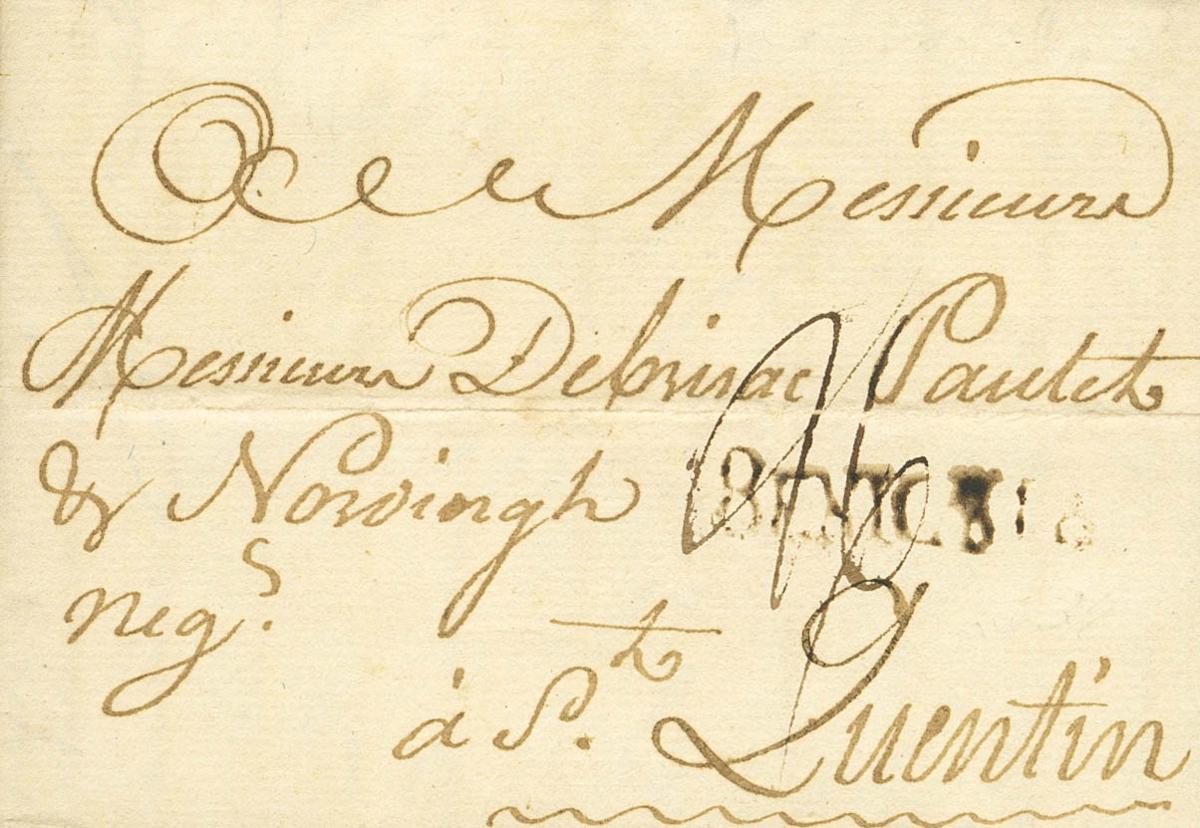 A Messieurs
Messieurs Debrisac Pautet
& Norvingh
neg.s
à S.t Quentin